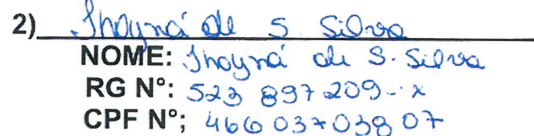 2) Thoyná de S. Silva
NOME: Thoyná de S. Silva
RG Nº: 523 897 209-x
CPF Nº; 466 037 038 07